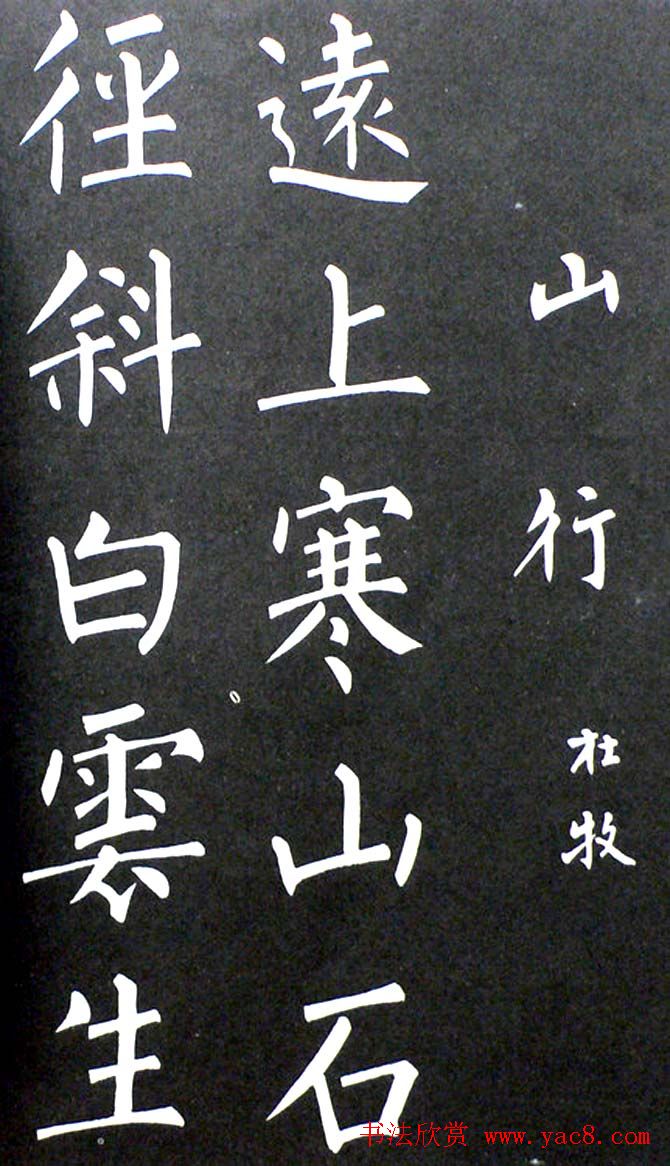 山行
杜牧
遠上寒山石
徑斜白雲生
书法欣赏 www.yac8.com